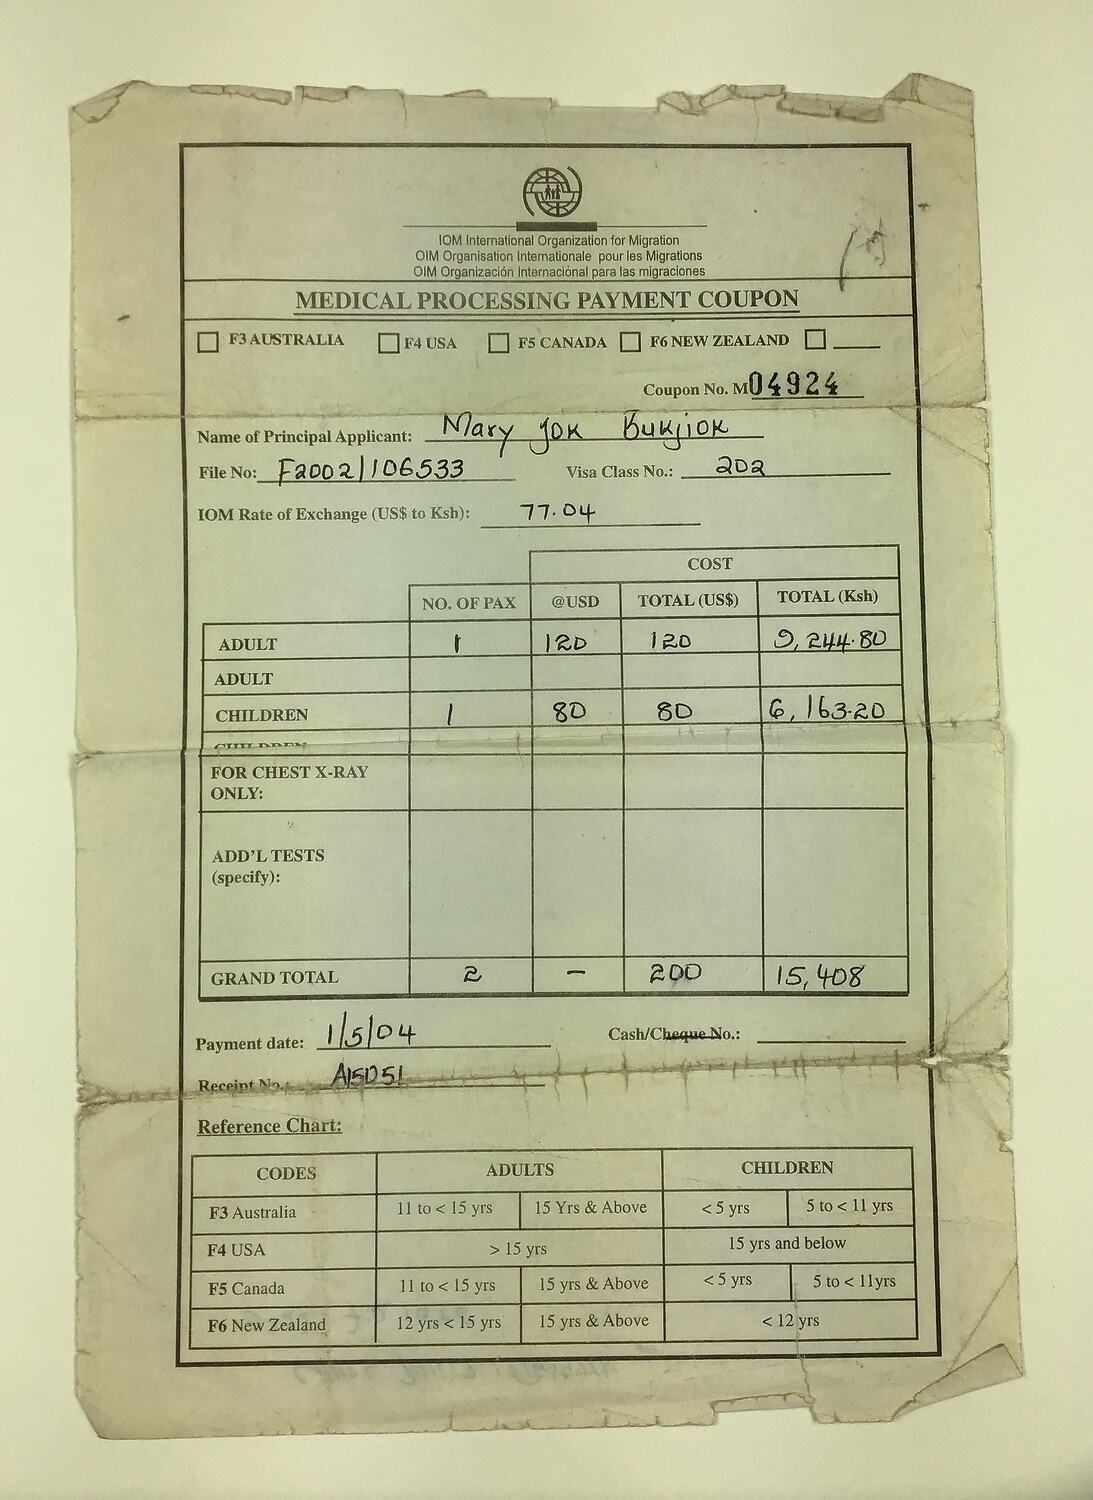 IOM International Organization for Migration
OIM Organisation Internationale pour les Migrations
OIM Organización Internaciónal para las migraciones
MEDICAL PROCESSING PAYMENT COUPON
F3 AUSTRALIA F4 USA F5 CANADA F6 NEW ZEALAND
Coupon No. M04924
Name of Principal Applicant: Mary Jok Bukjiok
File No: F2002/106533 Visa Class No.: 202
IOM Rate of Exchange (US$ to Ksh): 77.04
COST
NO. OF PAX @USD TOTAL (US$) TOTAL (Ksh)
ADULT 1 120 120 9,244.80
ADULT
CHILDREN 1 80 80 6,163.20
CHILDREN
FOR CHEST X-RAY
ONLY:
ADD'L TESTS
(specify):
GRAND TOTAL 2 – 200 15,408
Payment date: 1/5/04 Cash/Cheque No.:
Receipt No.: A15051
Reference Chart:
CODES ADULTS CHILDREN
F3 Australia 11 to < 15 yrs 15 Yrs & Above < 5 yrs 5 to < 11 yrs
F4 USA > 15 yrs 15 yrs and below
F5 Canada 11 to < 15 yrs 15 yrs & Above < 5 yrs 5 to < 11yrs
F6 New Zealand 12 yrs < 15 yrs 15 yrs & Above < 12 yrs